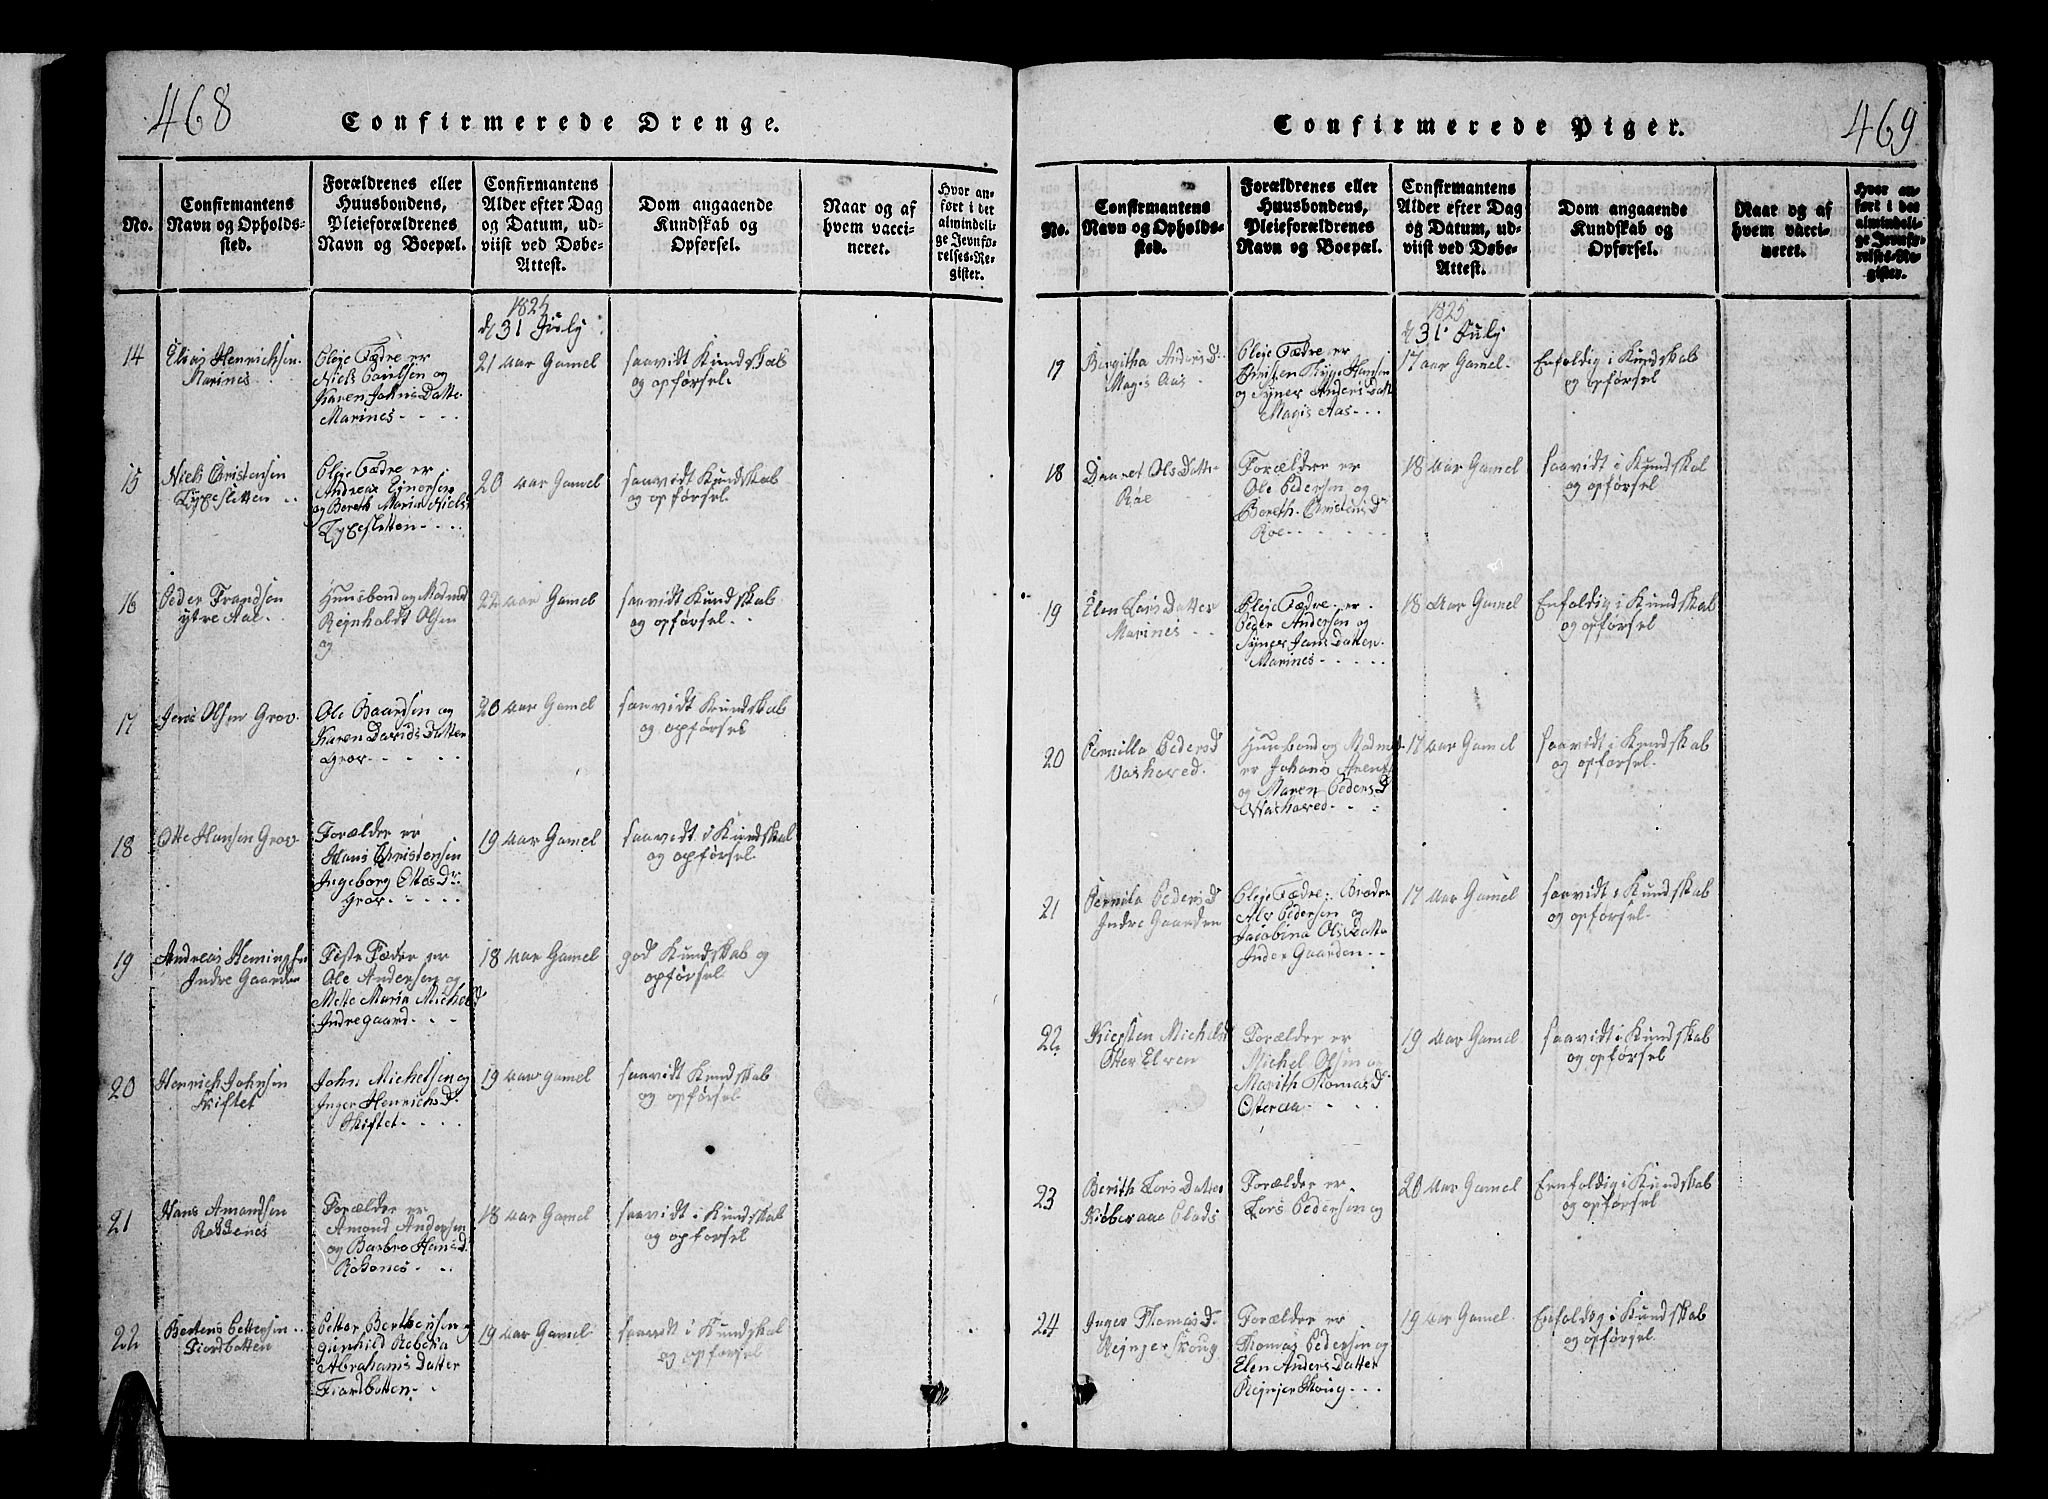 468
Confirmerede Drenge.
No.
Confirmantens
Navn og Opholds-
sted.
Forældrenes eller
Huusbondens,
Pleieforældrenes
Navn og Boepæl.
Confirmantens
Alder efter Dag
og Datum, ud-
viist ved Døbe-
Attest.
Dom angaaende
Kundskab og
Opførsel.
Naar og af
hvem vacci-
neret.
Hvor an-
ført i det
almindeli-
ge Jevnfø-
relses-Re-
gister.
1825
d 31 July
14
Elias Henrichsen
Marines
Pleje Fædre er
Niels Paulsen og
Karen Johns Datte
Marines
21 aar Gamel
saavidt Kundskab
og opførsel.
15
Niels Christensen
Pleje Fædre er
Andreas Einersen
og Bereth Maria Niels
20 aar Gamel
saavidt Kundskab
og opførsel.
16
Peder Frandsen
ytre Aae
Huusbond og Madmod
Rejnholdt Olsen
og
22 aar Gamel
saavidt Kundskab
og opførsel.
17
Jens Olsen Grov
Ole Baardsen og
Karen Davids Datter
Grov
20 aar Gamel
saavidt Kundskab
og opførsel
18
Otte Hansen Grov
Forælder er
Hans Christensen
Ingeborg Ottes Dr.
Grov
19 aar Gamel
saavidt i Kundskab
og opførsel.
19
Andreas Hemingsen
Indre Gaarden
Feste Fæder er
Ole Andersen og
Mette Maria Michels D
Indregaard
18 aar Gamel
god Kundskab og
opførsel
20
Henrich Johnsen
Skiftet
John Michelsen og
Inger Henrichs D.
Skiftet
19 aar gamel
saavidt Kundskab
og opførsel
21
Hans Amondsen
Rokkenes
Forælder er
Amond Andersen
og Barbro Hans D.
Rokenes
18 aar Gamel
saavidt i Kundskab
og opførsel
22
Bertens Pettersen
Fiordbotten
Petter Berthensen og
Gunhild Rebeka
Abrahams Datter
Fiordbotten
19 aar Gamel
saavidt i Kundskab
og opførsel
469
Confirmerede Piger.
No.
Confirmantens
Navn og Opholds-
sted.
Forældrenes eller
Huusbondens,
Pleieforældrenes
Navn og Boepæl.
Confirmantens
Alder efter Dag
og Datum, ud-
viist ved Døbe-
Attest.
Dom angaaende
Kundskab og
Opførsel.
Naar og af
hvem vacci-
neret.
Hvor an-
ført i det
almindeli-
ge Jevnfø-
relses-Re-
gister.
1825
d 31 July
17
Birgitha Anders D.
Magis Aas
Pleje Fædre er
Christen Hansen
og Syner Anders Datt
Magis Aas
17 aar Gamel
Enfoldig i Kundskab
og opførsel
18
Daaret Ols Datte
Roe
Forælder er
Ole Pedersen og
Bereth Christens D
Roe
18 aar Gamel
saavidt i Kundskab
og opførsel
19
Elen Lars Datter
Marines
Pleje Fædre er
Peder Andersen og
Syner Jens Datter
Marines
18 aar Gamel
Enfoldig i Kundskab
og opførsel
20
Pernilla Peders D
Vashoved
Huusbond og Madmod
er Johans
og Maren Peders D
Vashoved
17 aar Gamel
saavidt i Kundskab
og opførsel.
21
Pernila Peders D
Indre Gaarden
Pleje Fædre: Broder
Als Pedersen og
Jacobina Ols Datte
Inder Gaarden
17 aar Gamel
saavidt i Kundskab
og opførsel.
22
Kiersten Michels D
Otter Elven
Forælder er
Michel Olsen og
Marith Thomas D
Otteraa
19 aar Gamel
saavidt i Kundskab
og opførsel
23
Berith Lars Datter
Forælder er
Lars Pedersen og
20 aar Gamel
Eenfoldig i Kundskab
og opførsel
24
Inger Thomas D.
Rejnjer Skoug
Forælder er
Thomas Pedersen og
Elen Anders Datter
Rejnjer Skoug
19 aar Gamel
Eenfoldig i Kundskab
og opførsel